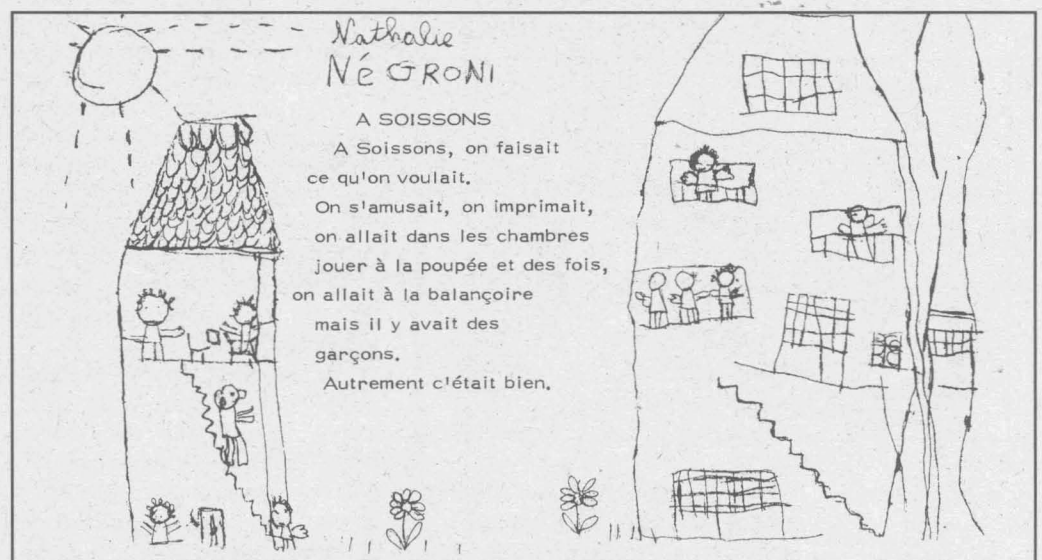 Nathalie
NÉGRONI
A SOISSONS
A Soissons, on faisait
ce qu'on voulait.
On s'amusait, on imprimait,
on allait dans les chambres
jouer à la poupée et des fois,
on allait à la balançoire
mais il y avait des
garçons.
Autrement c'était bien.